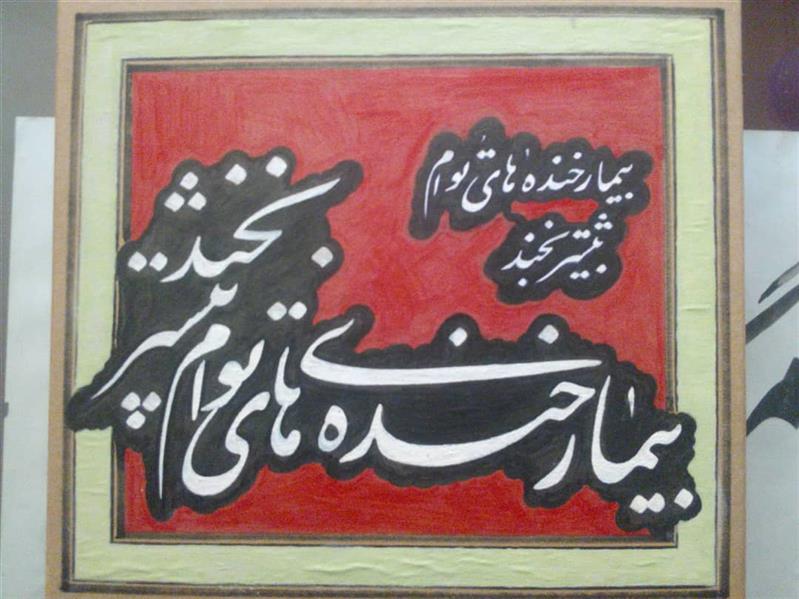 بیمار خنده های توام
بیشتر بخند
بیمار خنده‌ی های توام بیشتر بخند